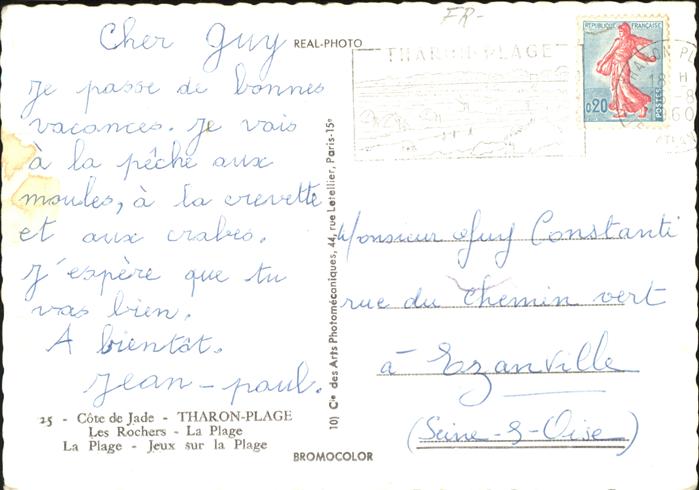 FR-
Cher Guy
Je passe de bonnes
vacances. Je vais
à la pêche aux
moules, à la crevette
et aux crabes.
J'espère que tu
vas bien.
A bientôt.
Jean-paul.
25 - Côte de Jade - THARON-PLAGE
Les Rochers - La Plage
La Plage - Jeux sur la Plage
REAL-PHOTO
10) Cie des Arts Photomécaniques, 44, rue Letellier, Paris-15e
BROMOCOLOR
THARON-PLAGE
REPUBLIQUE FRANÇAISE
0,20
POSTES
THARON PL
18 H
60
Monsieur Guy Constanti
rue du Chemin vert
à Ezanville
(Seine-&-Oise)